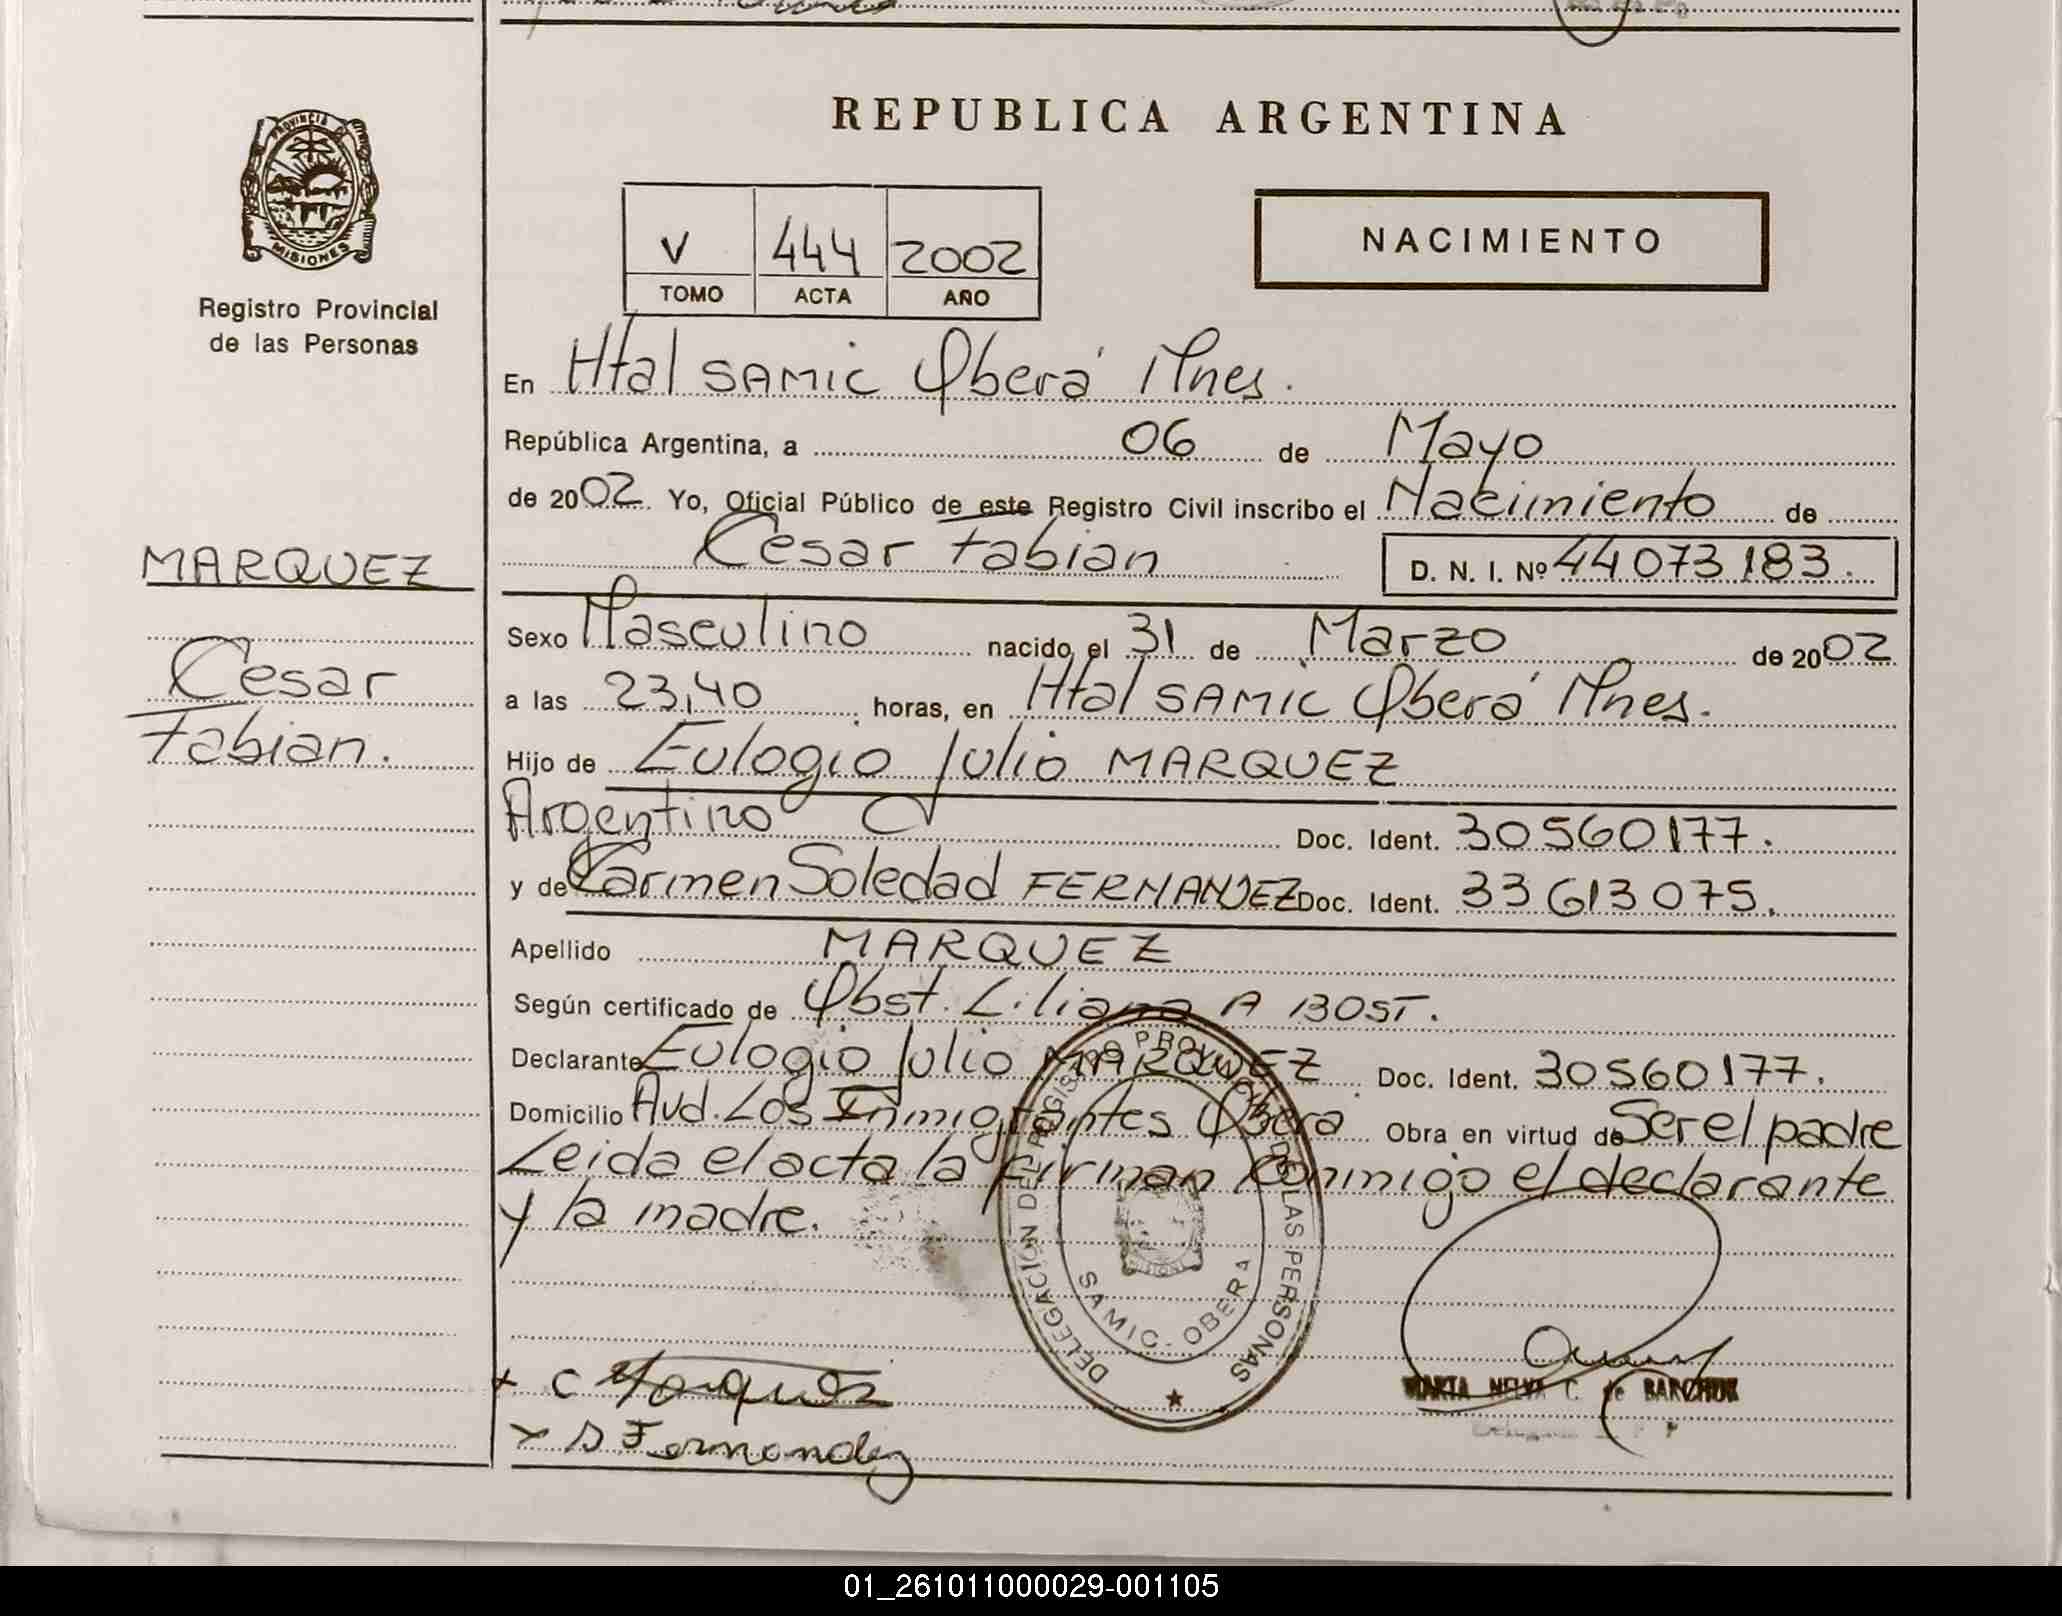 REPUBLICA ARGENTINA
PROVINCIA DE
MISIONES
Registro Provincial
de las Personas
V 444 2002
TOMO ACTA AÑO
NACIMIENTO
En Htal SAMIC Oberá Mnes.
República Argentina, a 06 de Mayo
de 2002. Yo, Oficial Público de este Registro Civil inscribo el Nacimiento de
Cesar Fabian D. N. I. Nº 44 073 183.
MARQUEZ
Cesar
Fabian.
Sexo Masculino nacido el 31 de Marzo de 2002
a las 23,40 horas, en Htal SAMIC Oberá Mnes.
Hijo de Eulogio Julio MARQUEZ
Argentino Doc. Ident. 30560177.
y de Carmen Soledad FERNANDEZ Doc. Ident. 33 613 075.
Apellido MARQUEZ
Según certificado de Obst. Liliana A BOST.
Declarante Eulogio Julio MARQUEZ Doc. Ident. 30560177.
Domicilio Avd. Los Inmigrantes Oberá Obra en virtud de Ser el padre
Leida el acta la firman Conmigo el declarante
y la madre.
DELEGACIÓN DEL REGISTRO PROVINCIAL DE LAS PERSONAS
MISIONES
SAMIC. OBERA
+ C Marquez
x S Fernandez
MARTA NELVA C. de BARCHUK
01_261011000029-001105